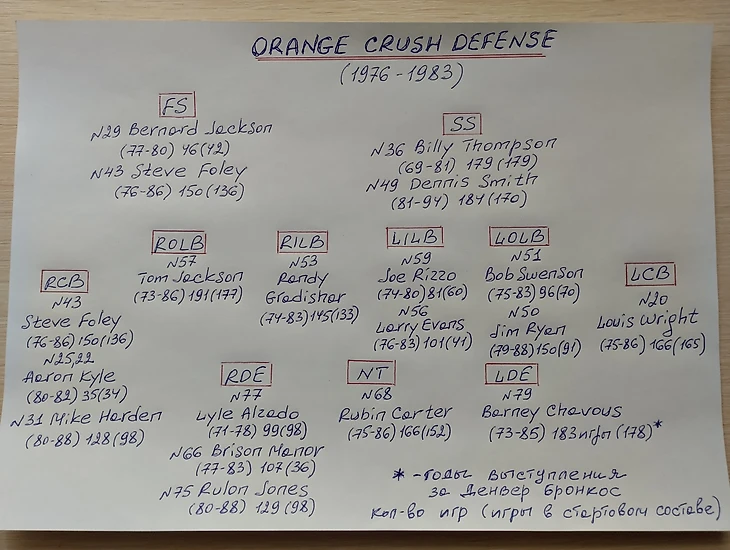 ORANGE CRUSH DEFENSE
(1976-1983)
FS
N29 Bernard Jackson
(77-80) 46(42)
N43 Steve Foley
(76-86) 150(136)
SS
N36 Billy Thompson
(69-81) 179(179)
N49 Dennis Smith
(81-94) 184(170)
RCB
N43
Steve Foley
(76-86)150(136)
N25,22
Aaron Kyle
(80-82) 35(34)
N31 Mike Harden
(80-88) 128(98)
ROLB
N57
Tom Jackson
(73-86)191(177)
RILB
N53
Randy
Gradishar
(74-83)145(133)
LILB
N59
Joe Rizzo
(74-80)81(60)
N56
Larry Evans
(76-83)101(41)
LOLB
N51
Bob Swenson
(75-83)96(70)
N50
Jim Ryan
(79-88)150(91)
LCB
N20
Louis Wright
(75-86) 166(165)
RDE
N77
Lyle Alzado
(71-78) 99(98)
N66 Brison Manor
(77-83) 107(36)
N75 Rulon Jones
(80-88) 129(98)
NT
N68
Rubin Carter
(75-86)166(152)
LDE
N79
Barney Chavous
(73-85) 183игры (178)*
* -годы выступления
за Денвер Бронкос
кол-во игр (игры в стартовом составе)